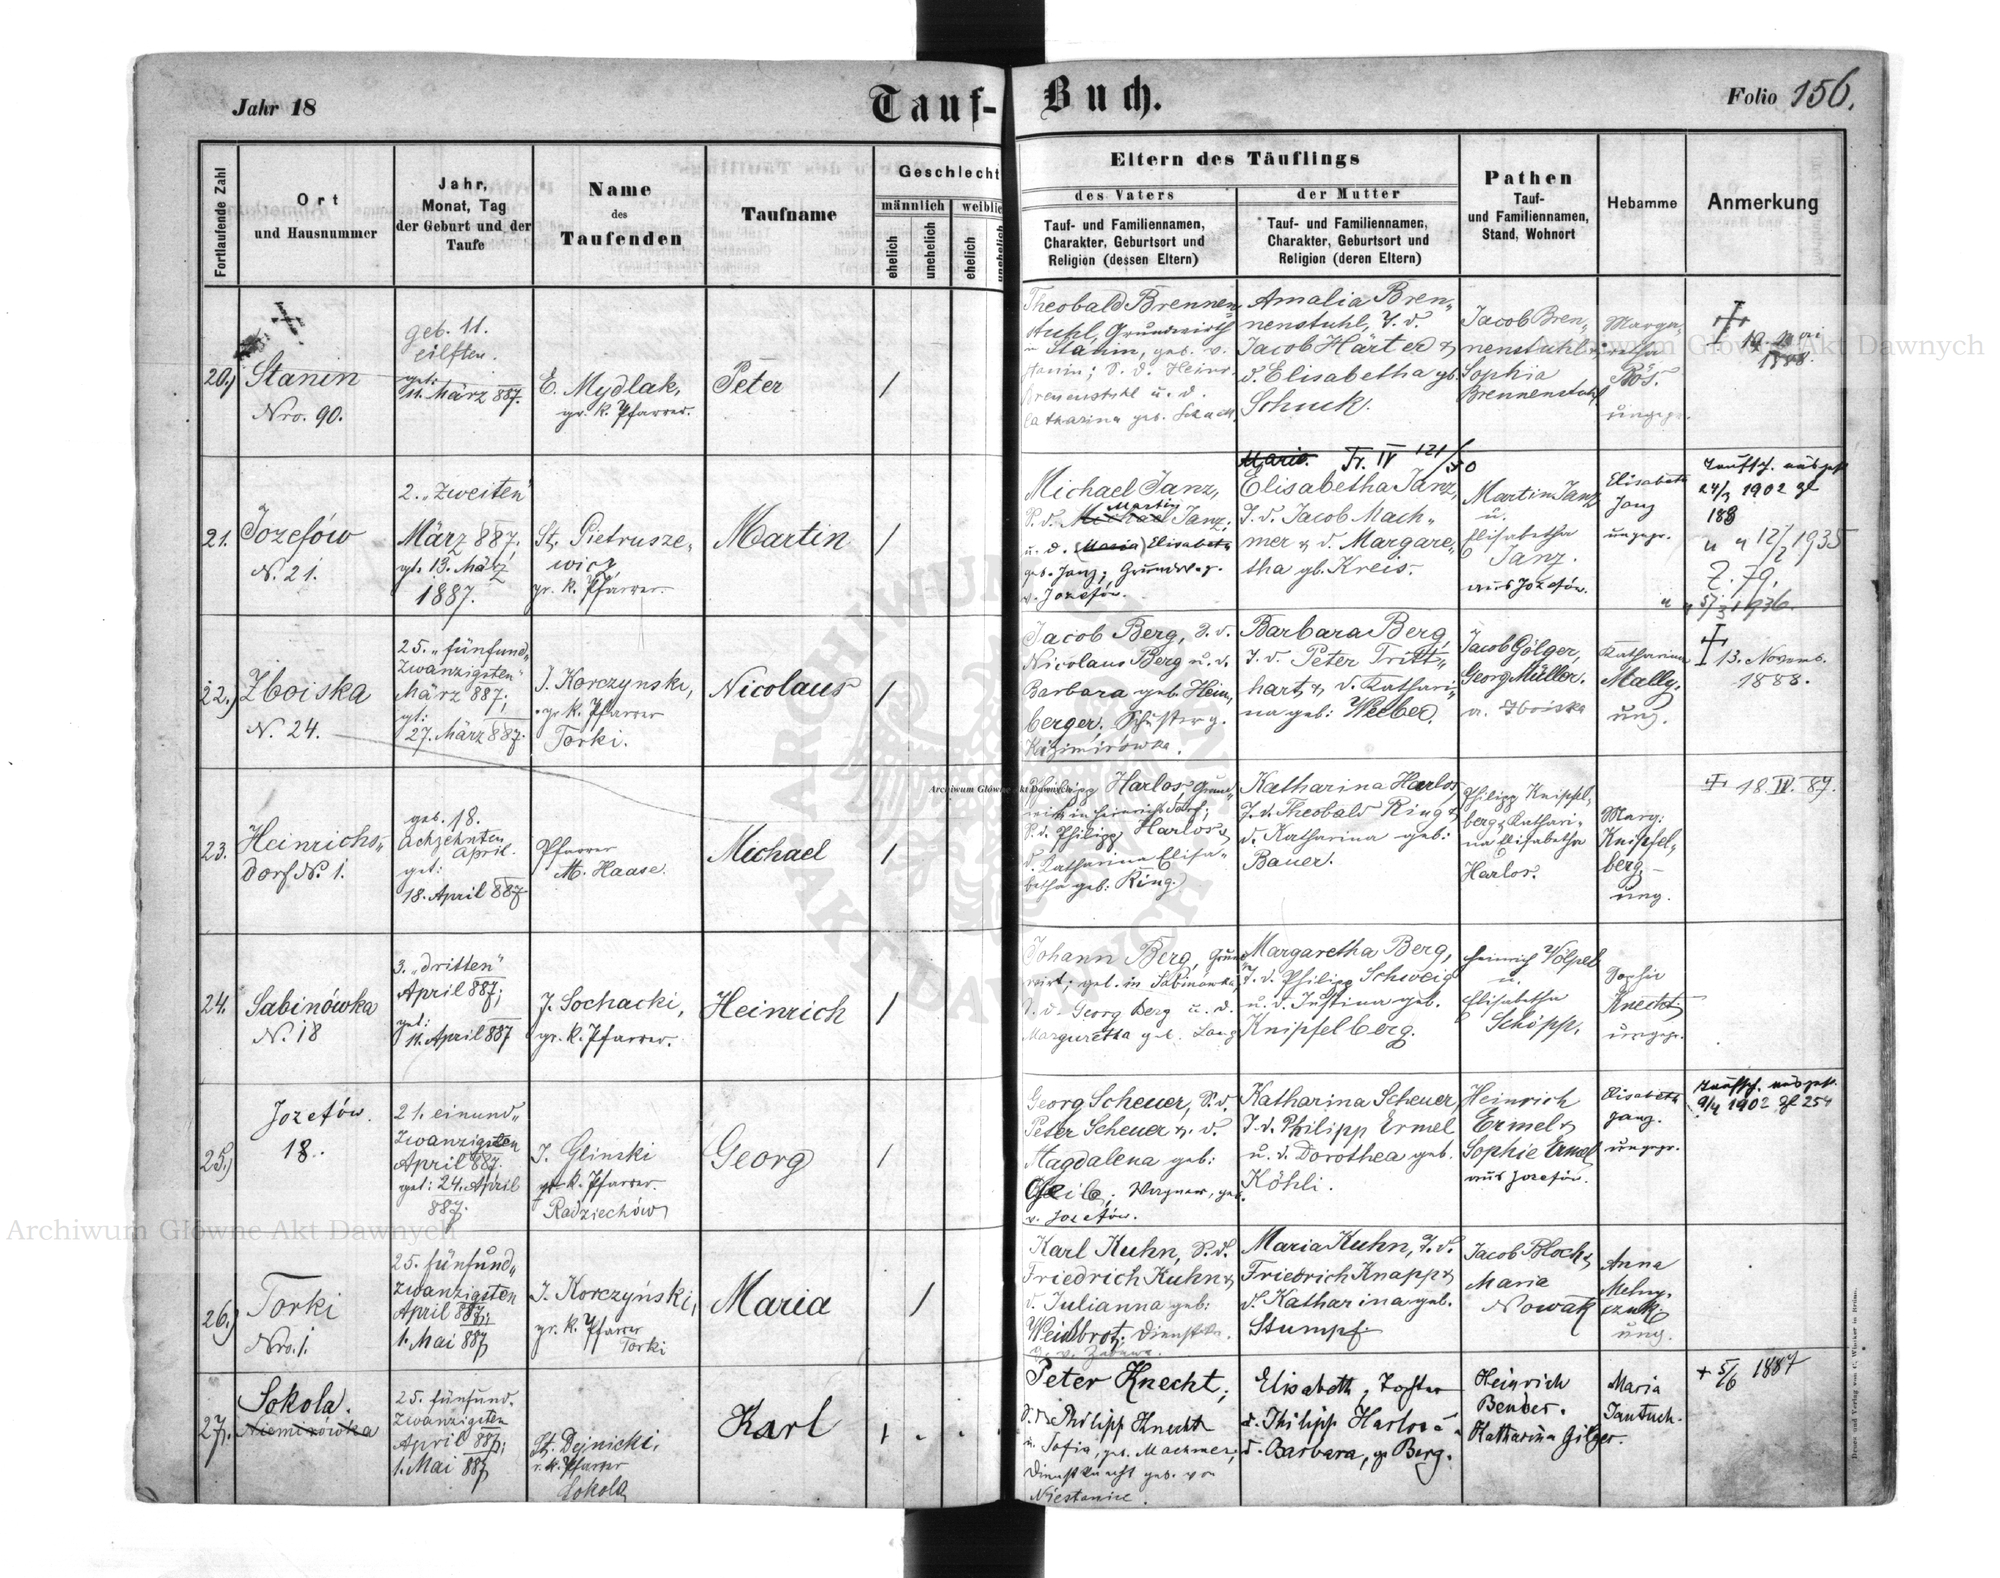 Jahr 18
Tauf-Buch.
Folio 156.
Fortlaufende Zahl
Ort
und Hausnummer
Jahr,
Monat, Tag
der Geburt und der
Taufe
Name
des
Taufenden
Taufname
Geschlecht
männlich
weiblich
ehelich
unehelich
ehelich
unehelich
Eltern des Täuflings
des Vaters
Tauf- und Familiennamen,
Charakter, Geburtsort und
Religion (dessen Eltern)
der Mutter
Tauf- und Familiennamen,
Charakter, Geburtsort und
Religion (deren Eltern)
Pathen
Tauf-
und Familiennamen,
Stand, Wohnort
Hebamme
Anmerkung
20.)
Stanin
Nro. 90.
geb. 11.
eilften.
get:
11. März 887.
E. Mydlak,
gr. k. Pfarrer.
Peter
/
Theobald Brennen-
stuhl, Grundwirth
Stanin, geb. v.
Stanin; S. d. Heinr.
Brennenstuhl u. d.
Catharina geb. Schuck.
Amalia Bren-
nenstuhl, T. d.
Jacob Härter &
d. Elisabetha gb.
Schuck.
Jacob Bren-
nenstuhl &
Sophia
Brennenstuhl
Marga-
retha
Bös.
ungepr.
1888.
21.
Jozefów
N. 21.
2. "Zweiten"
März 887,
gt. 13. März
1887.
St. Pietrusze-
wicz
gr. k. Pfarrer.
Martin
/
Michael Janz,
S. d. Michael Martin Janz,
u. d. (Maria) Elisabeta
geb. Janz; Grundw. g.
v. Jozefów.
Maria. Tr. IV 121/50
Elisabetha Janz,
T. d. Jacob Mach-
mer & d. Margare-
tha gb. Kreis.
Martin Janz
u.
Elisabetha
Janz.
aus Jozefów.
Elisabeth
Janz
ungepr.
Taufsch. ausgest.
24/3 1902 Zl
188
u u 12/2 1935
Z. 79.
u u 5/3 1936.
22.)
Zboiska
N. 24.
25. "fünfund-
zwanzigsten"
März 887;
gt:
27. März 887.
J. Korczynski,
gr. k. Pfarrer
Torki.
Nicolaus
/
Jacob Berg, S. d.
Nicolaus Berg u. d.
Barbara geb. Heim-
berger, Schuster g.
Kazimirówka.
Barbara Berg,
T. d. Peter Tritt-
hart, & d. Kathari-
na geb: Weeber.
Jacob Gölger,
Georg Müller.
a. Zboiska
Katharina
Mally.
ung.
13. Novemb.
1888.
23.
Heinrichs-
dorf N. 1.
geb. 18.
achzehnten
April.
get:
18. April 887
Pfarrer
M. Haase.
Michael
/
Philipp Harlos, Grund-
wirth in Heinrichsdorf;
S. d. Philipp Harlos &
d. Katharina Elisa-
betha geb: Ring.
Katharina Harlos
T. d. Theobald Ring &
d. Katharina geb:
Bauer.
Philipp Knipfel-
berg & Kathari-
na Elisabetha
Harlos.
Marg:
Knipfel-
berg,
ung.
18. IV. 87.
24.
Sabinówka
N. 18
3. "dritten"
April 887;
get:
11. April 887
J. Sochacki,
gr. k. Pfarrer.
Heinrich
/
Johann Berg, Grund-
wirt; geb. in Sabinowka,
S. d. Georg Berg u. d.
Margaretha geb. Lang
Margaretha Berg,
T. d. Philipp Schweig
u. d. Justina geb.
Knipfelberg.
Heinrich Völpel
u.
Elisabetha
Schöpp.
Sophie
Knecht
ungepr.
25.)
Jozefów.
18.
21. einund-
zwanzigsten
April 887.
get: 24. April
887.
J. Glinski
gr. k. Pfarrer.
Radziechów
Georg
/
Georg Scheuer, S. d.
Peter Scheuer &. d.
Magdalena geb:
Geib; Wagner, geb.
v. Jozefów.
Katharina Scheuer,
T. d. Philipp Ermel
u. d. Dorothea geb.
Köhli.
Heinrich
Ermel &
Sophie Ermel
aus Jozefów.
Elisabeta
Janz.
ungepr.
Taufsch. ausgest.
9/4 1902 Zl 254
26.)
Torki
Nro. 1.
25. fünfund-
zwanzigsten
April 887;
1. Mai 887
J. Korczyński,
gr. k. Pfarrer
Torki
Maria
/
Karl Kuhn, S. d.
Friedrich Kuhn &
d. Julianna geb:
Weissbrot; Dienstkn.
Maria Kuhn, T. d.
Friedrich Knapp &
d. Katharina geb.
Stumpf.
Jacob Bloch &
Maria
Nowak
Anna
Melny-
czuk
ung.
27.
Sokola.
Niemirówka
25. fünfund.
zwanzigsten
April 887;
1. Mai 887
St. Dejnicki,
r. k. Pfarrer
Sokola
Karl
Peter Knecht,
S. d. Philipp Knecht
u. Sofia, geb. Machmer;
Dienstknecht geb. von
Niestanice.
Elisabeth, Tochter
d. Philipp Harlos &
d. Barbara, g. Berg.
Heinrich
Bender.
Katharina Gilger.
Maria
Jantuch.
+ 5/6 1887
Druck und Verlag von C. Winiker in Brünn.
Archiwum Główne Akt Dawnych
Archiwum Główne Akt Dawnych
Archiwum Główne Akt Dawnych
ARCHIWUM GŁÓWNE AKT DAWNYCH